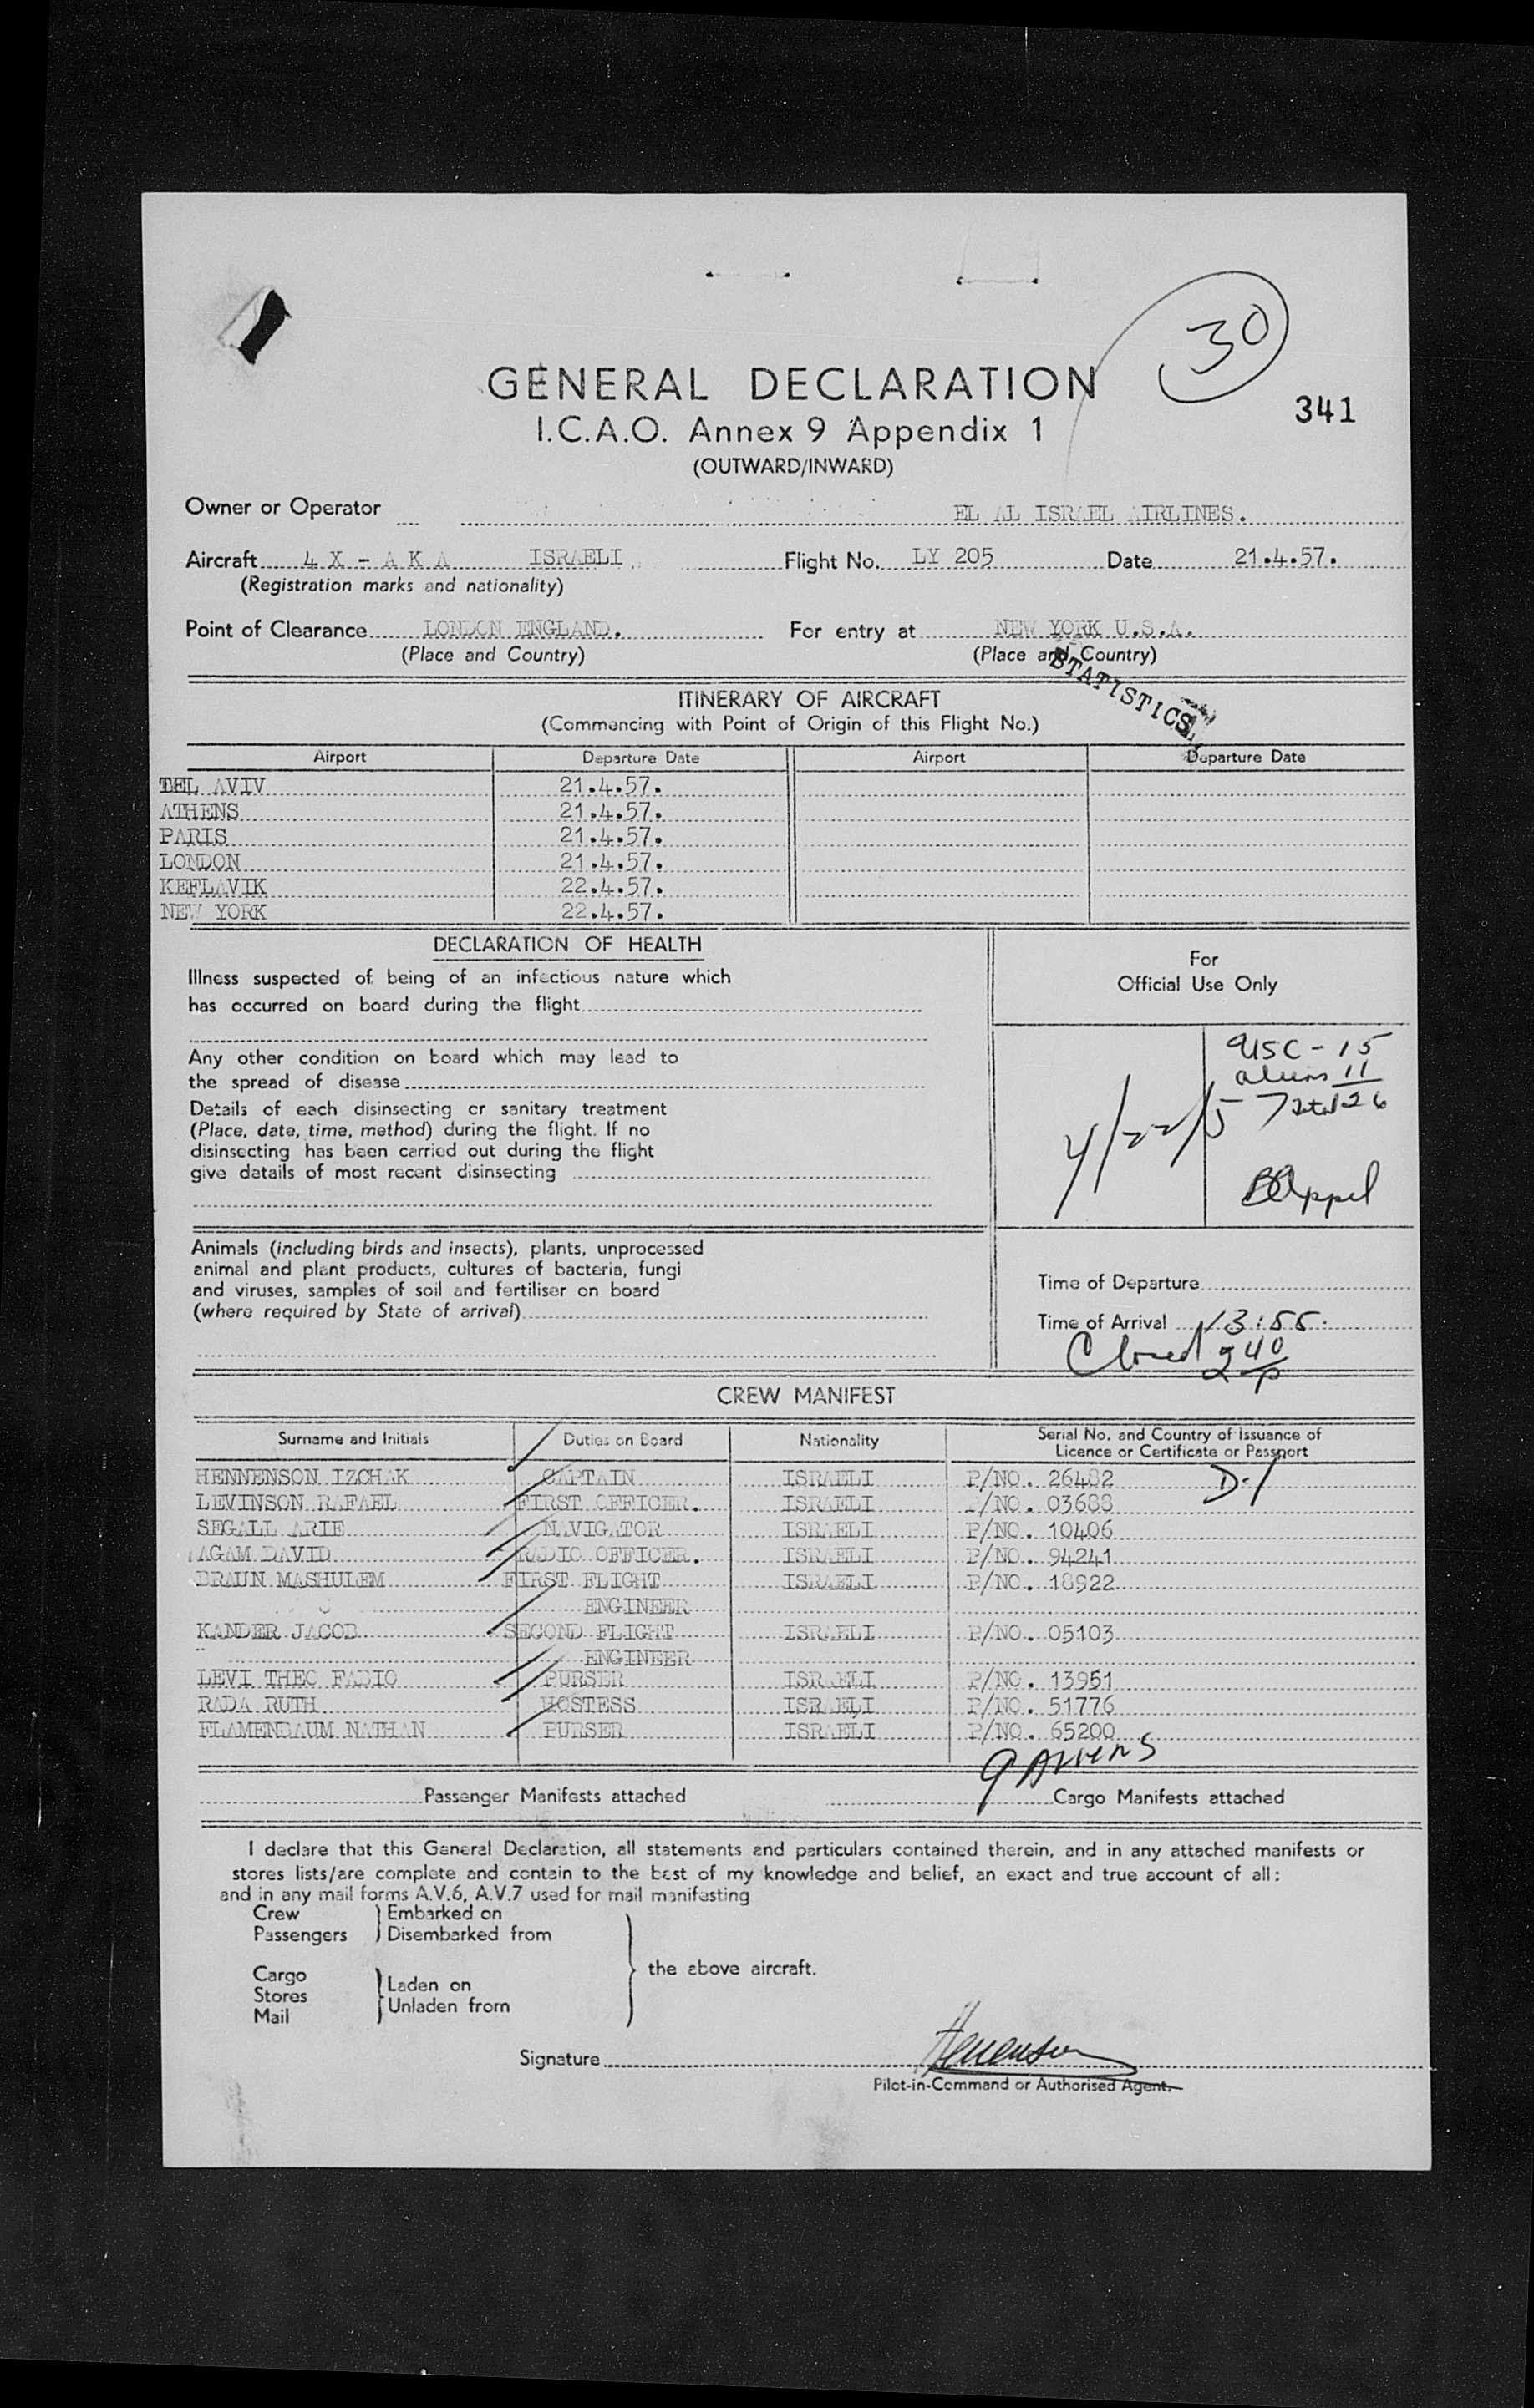 30
GENERAL DECLARATION
341
I.C.A.O. Annex 9 Appendix 1
(OUTWARD/INWARD)
Owner or Operator EL AL ISRAEL AIRLINES.
Aircraft 4 X - A K A ISRAELI Flight No. LY 205 Date 21.4.57.
(Registration marks and nationality)
Point of Clearance LONDON ENGLAND. For entry at NEW YORK U.S.A.
(Place and Country) (Place and Country)
STATISTICS
ITINERARY OF AIRCRAFT
(Commencing with Point of Origin of this Flight No.)
Airport Departure Date Airport Departure Date
TEL AVIV 21.4.57.
ATHENS 21.4.57.
PARIS 21.4.57.
LONDON 21.4.57.
KEFLAVIK 22.4.57.
NEW YORK 22.4.57.
DECLARATION OF HEALTH
Illness suspected of being of an infectious nature which
has occurred on board during the flight
Any other condition on board which may lead to
the spread of disease
Details of each disinsecting or sanitary treatment
(Place, date, time, method) during the flight. If no
disinsecting has been carried out during the flight
give details of most recent disinsecting
Animals (including birds and insects), plants, unprocessed
animal and plant products, cultures of bacteria, fungi
and viruses, samples of soil and fertiliser on board
(where required by State of arrival)
For
Official Use Only
USC - 15
aliens 11
Total 26
4/22/57
Appel
Time of Departure
Time of Arrival 13:55.
Closed 240 P
CREW MANIFEST
Surname and Initials Duties on Board Nationality Serial No. and Country of Issuance of
Licence or Certificate or Passport
HENNENSON IZCHAK CAPTAIN ISRAELI P/NO. 26482 D-1
LEVINSON RAFAEL FIRST OFFICER. ISRAELI P/NO. 03688
SEGALL ARIE NAVIGATOR ISRAELI P/NO. 10406
AGAM DAVID RADIO OFFICER. ISRAELI P/NO. 94241
BRAUN MASHULEM FIRST FLIGHT ISRAELI P/NO. 18922
ENGINEER
KANDER JACOB SECOND FLIGHT ISRAELI P/NO. 05103
ENGINEER
LEVI THEO FADIO PURSER ISRAELI P/NO. 13951
RADA RUTH HOSTESS ISRAELI P/NO. 51776
FLAMENBAUM NATHAN PURSER ISRAELI P/NO. 65200
9 Aliens
Passenger Manifests attached Cargo Manifests attached
I declare that this General Declaration, all statements and particulars contained therein, and in any attached manifests or
stores lists/are complete and contain to the best of my knowledge and belief, an exact and true account of all:
and in any mail forms A.V.6, A.V.7 used for mail manifesting
Crew Embarked on
Passengers Disembarked from
the above aircraft.
Cargo
Stores Laden on
Mail Unladen from
Signature Henenson
Pilot-in-Command or Authorised Agent.